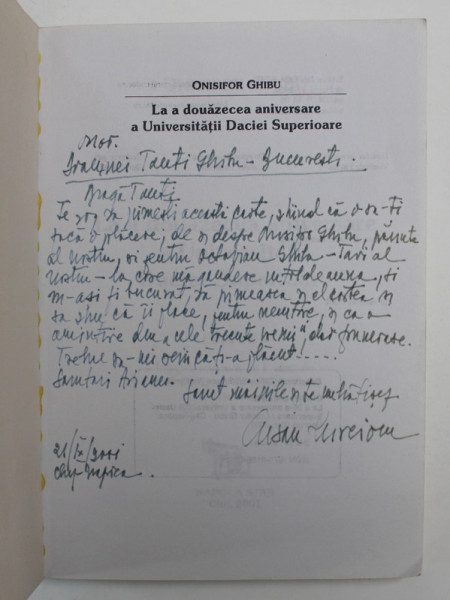 ONISIFOR GHIBU
La a douăzecea aniversare
a Universității Daciei Superioare
Doamnei Tanti Ghibu - București.
Dragă Tanti,
Te rog să primești această carte, știind că o să-ți
facă o plăcere; de și despre Onisifor Ghibu, părinte
al nostru, și pentru Octavian Ghibu - Tavi al
nostru - la care mă gândesc întotdeauna, și
m-ași fi bucurat, să primească și el cartea și
să știu că îi place, pentru și ca o
amintire din „acele trecute vremi", dar frumoase.
Trebue să-mi scrii că ți-a plăcut.....
Sărut mâinile și te îmbrățișez
21/IX/2001
Cluj Napoca.